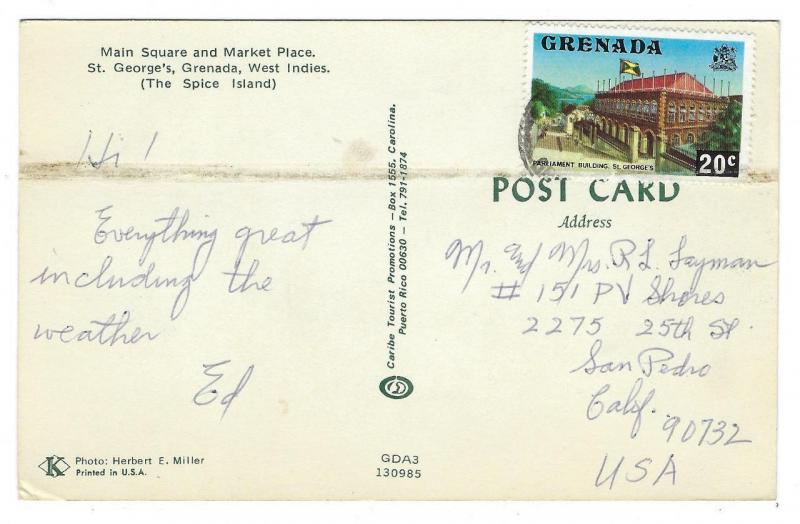 Main Square and Market Place.
St. George's, Grenada, West Indies.
(The Spice Island)
Hi!
Everything great
including the
weather
Ed
K
Photo: Herbert E. Miller
Printed in U.S.A.
Caribe Tourist Promotions — Box 1555, Carolina,
Puerto Rico 00630 — Tel. 791-1874
GDA3
130985
GRENADA
PARLIAMENT BUILDING, ST. GEORGE'S
20c
POST CARD
Address
Mr. and Mrs. R L Layman
# 151 PV Shores
2275 25th St.
San Pedro
Calif.
90732
USA